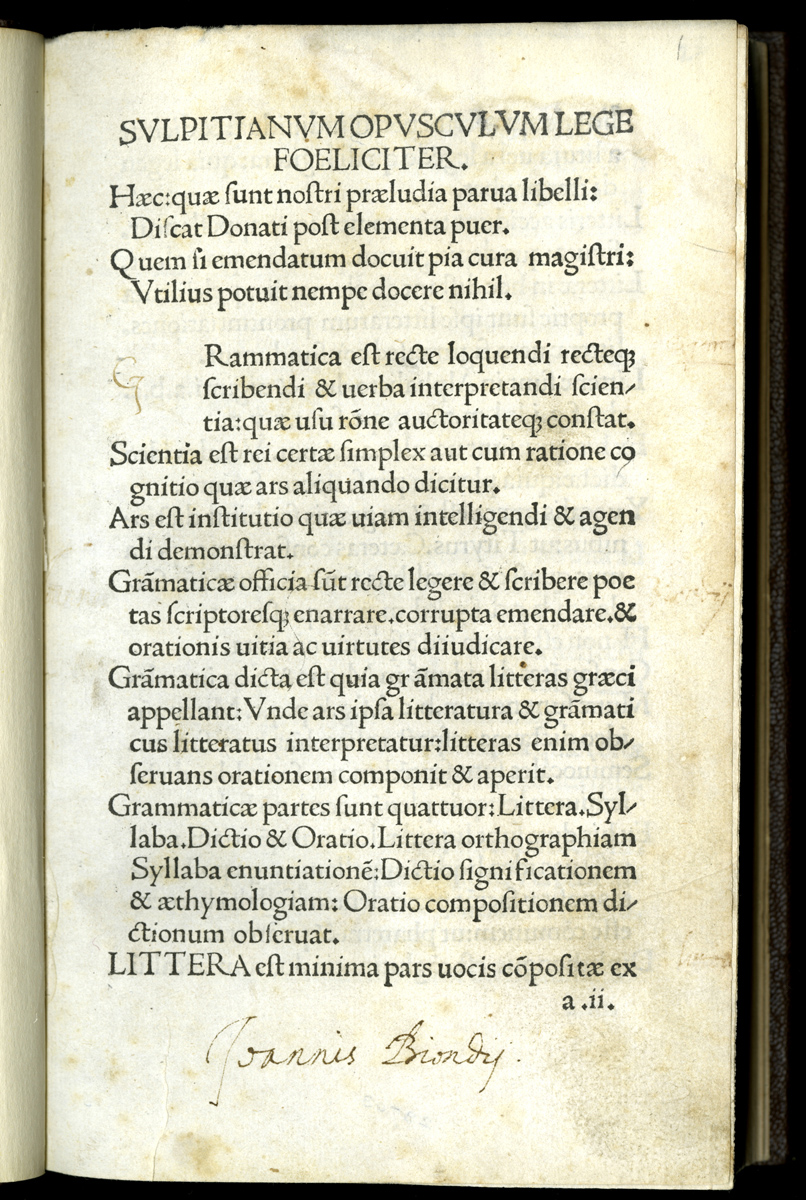 1
SVLPITIANVM OPVSCVLVM LEGE
FOELICITER.
Hæc:quæ ſunt noſtri præludia parua libelli:
Diſcat Donati poſt elementa puer.
Quem ſi emendatum docuit pia cura magiſtri:
Vtilius potuit nempe docere nihil.
G
Rammatica eſt recte loquendi recteqꝫ
ſcribendi & uerba interpretandi ſcien/
tia:quæ uſu rõne auctoritateqꝫ conſtat.
Scientia eſt rei certæ ſimplex aut cum ratione co
gnitio quæ ars aliquando dicitur.
Ars eſt inſtitutio quæ uiam intelligendi & agen
di demonſtrat.
Grãmaticæ officia ſũt recte legere & ſcribere poe
tas ſcriptoreſqꝫ enarrare.corrupta emendare.&
orationis uitia ac uirtutes diiudicare.
Grãmatica dicta eſt quia gr ãmata litteras græci
appellant:Vnde ars ipſa litteratura & grãmati
cus litteratus interpretatur:litteras enim ob/
ſeruans orationem componit & aperit.
Grammaticæ partes ſunt quattuor:Littera.Syl/
laba.Dictio & Oratio.Littera orthographiam
Syllaba enuntiationẽ:Dictio ſignificationem
& æthymologiam: Oratio compoſitionem di/
ctionum obſeruat.
LITTERA eſt minima pars uocis cõpoſitæ ex
a .ii.
Joannis Biondij.